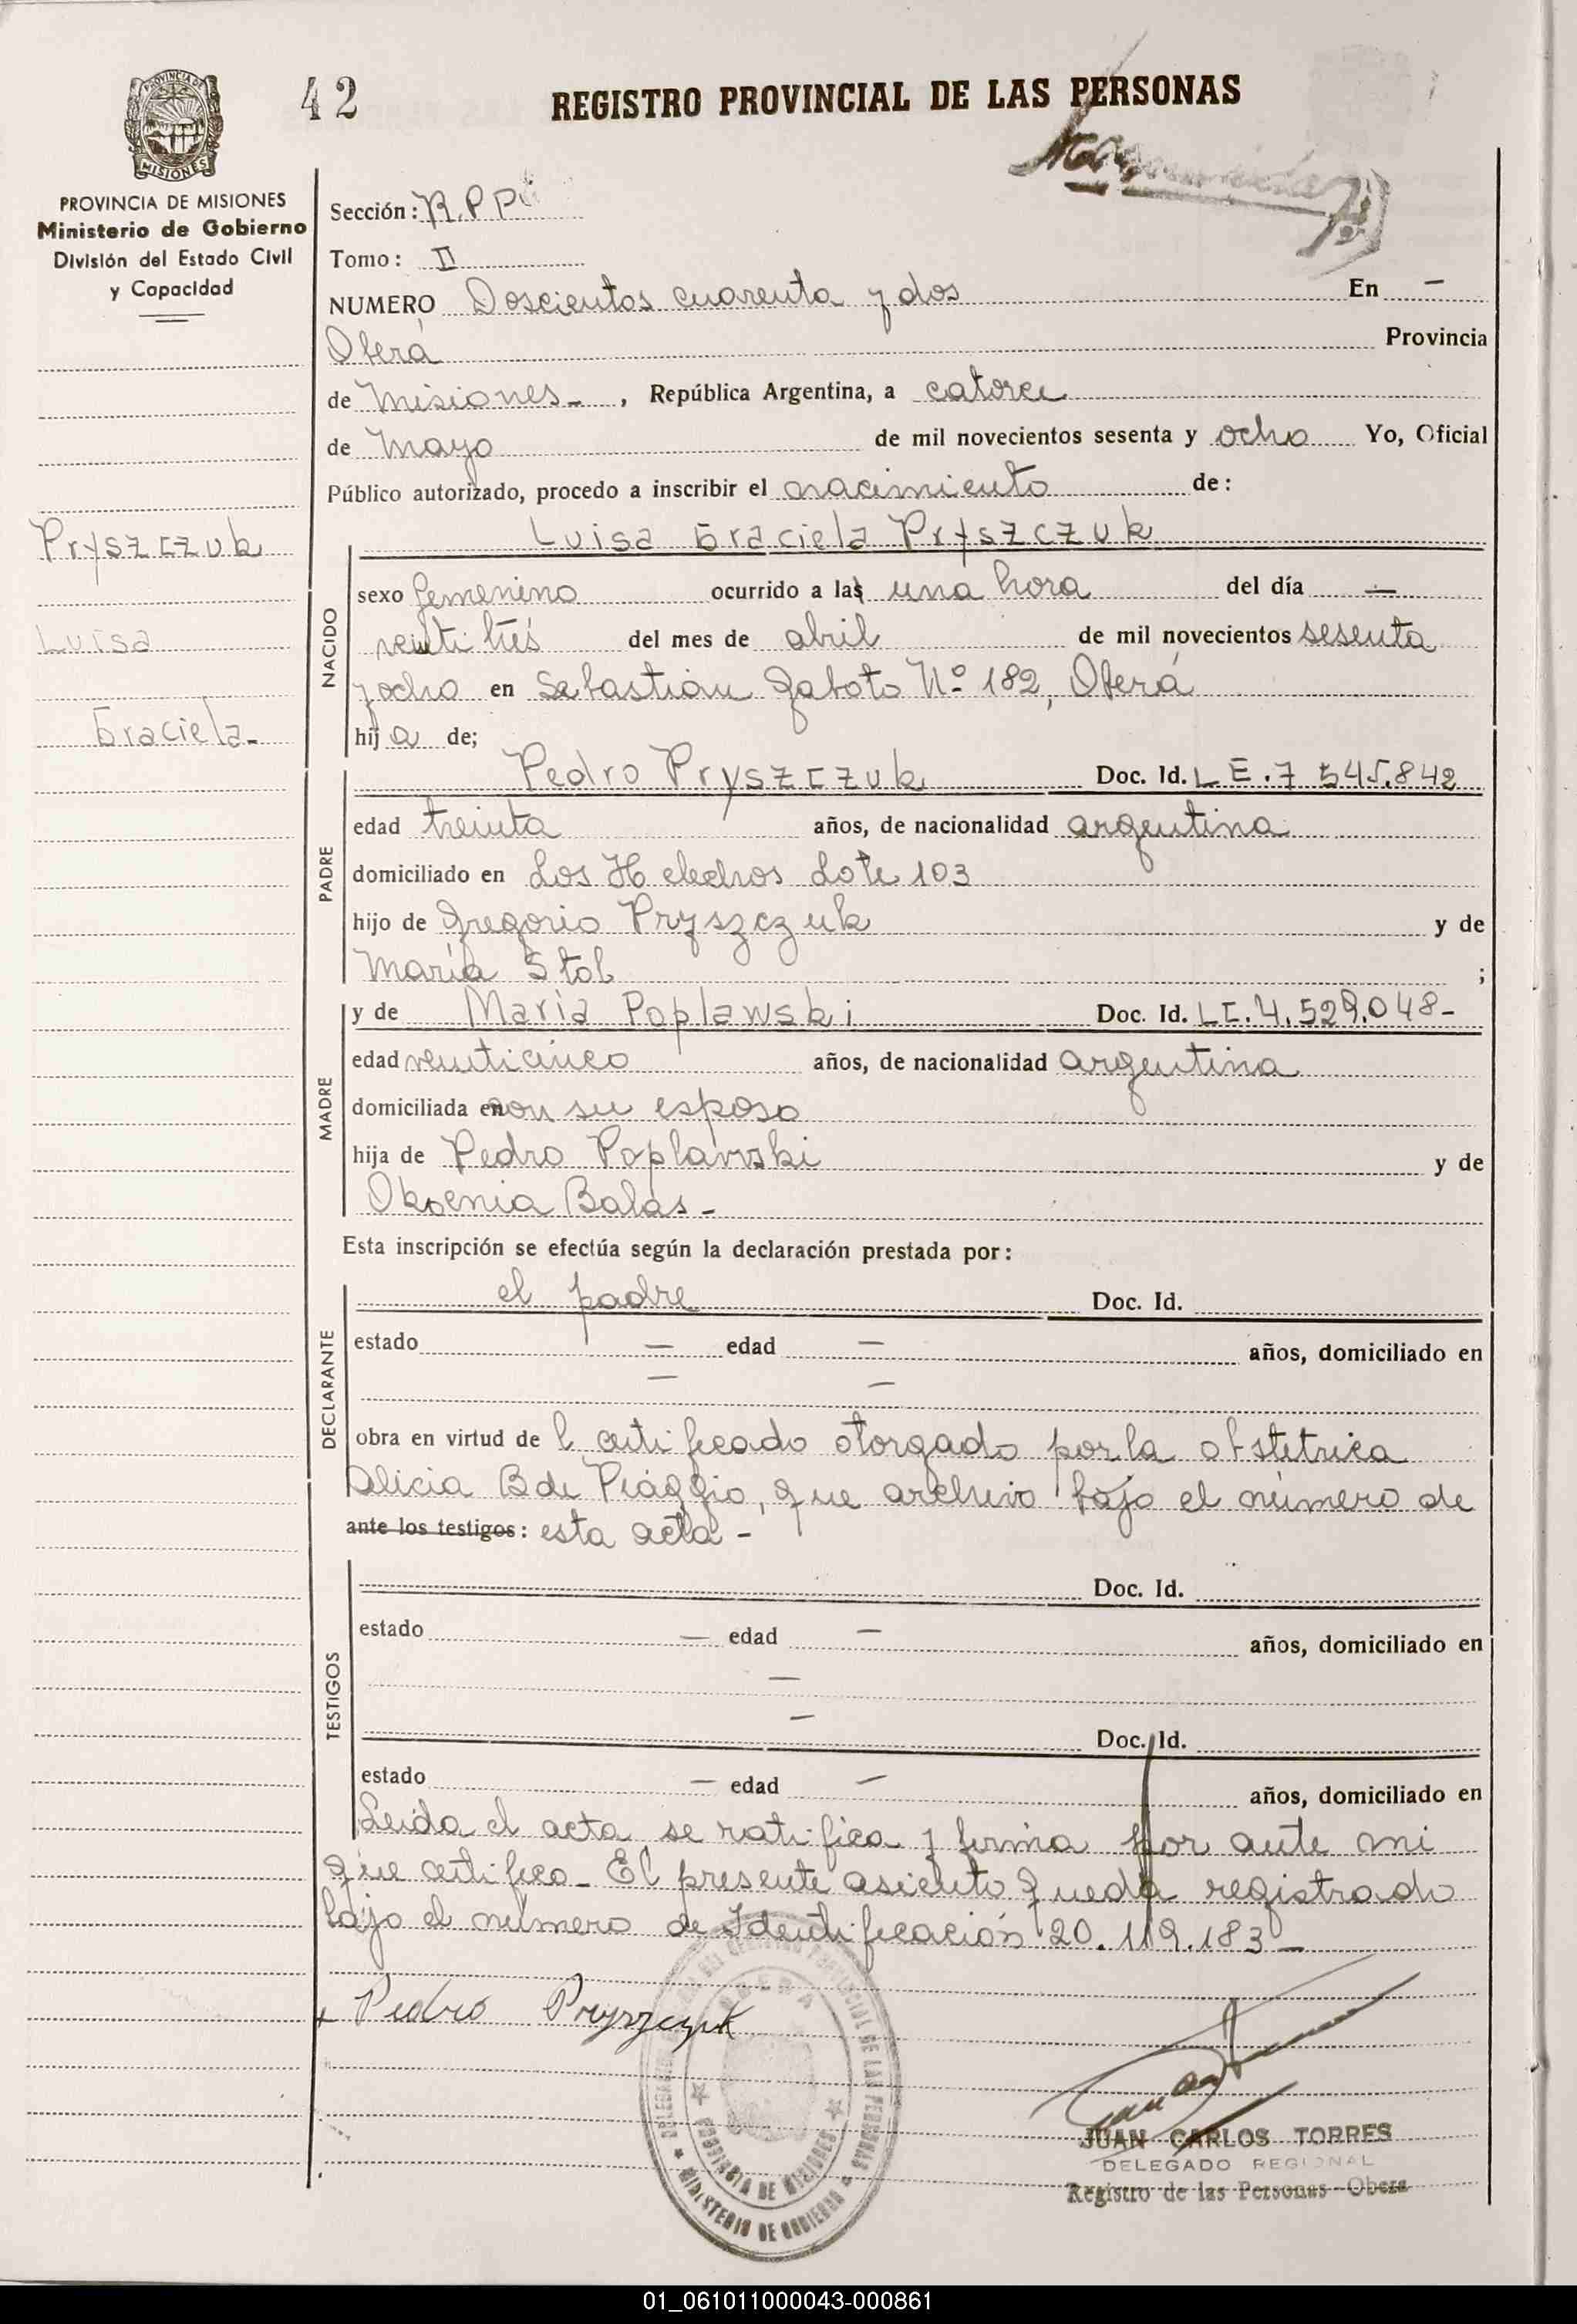 42
REGISTRO PROVINCIAL DE LAS PERSONAS
PROVINCIA DE
MISIONES
PROVINCIA DE MISIONES
Ministerio de Gobierno
División del Estado Civil
y Capacidad
Sección: R.P.P.
Tomo: II
NUMERO Doscientos cuarenta y dos En —
Oberá Provincia
de Misiones - , República Argentina, a catorce
de Mayo de mil novecientos sesenta y ocho Yo, Oficial
Público autorizado, procedo a inscribir el nacimiento de:
Pryszczuk
Luisa
Graciela-
Luisa Graciela Pryszczuk
NACIDO
sexo femenino ocurrido a las una hora del día —
veintitrés del mes de abril de mil novecientos sesenta
y ocho en Sebastián Gaboto Nº 182, Oberá
hij a de;
PADRE
Pedro Pryszczuk Doc. Id. L E. 7 545.842
edad treinta años, de nacionalidad argentina
domiciliado en Los Helechos Lote 103
hijo de Gregorio Pryszczuk y de
María Stol ;
MADRE
y de María Poplawski Doc. Id. LC. 4.529.048-
edad veinticinco años, de nacionalidad argentina
domiciliada en con su esposo
hija de Pedro Poplawski y de
Balas -
Esta inscripción se efectúa según la declaración prestada por:
DECLARANTE
el padre Doc. Id.
estado — edad — años, domiciliado en
— —
obra en virtud de l certificado otorgado por la obstétrica
Alicia B de Piaggio, que archivo bajo el número de
ante los testigos: esta acta -
TESTIGOS
Doc. Id.
estado — edad — años, domiciliado en
—
— Doc. Id.
estado — edad — años, domiciliado en
Leída el acta se ratifica y firma por ante mi
que certifico - El presente asiento queda registrado
bajo el número de Identificación 20.119.183-
Pedro Pryszczuk
DEL REGISTRO PROVINCIAL DE LAS PERSONAS
OBERA
PROVINCIA DE MISIONES
MINISTERIO DE GOBIERNO
JUAN CARLOS TORRES
DELEGADO REGIONAL
Registro de las Personas - Obera
01_061011000043-000861